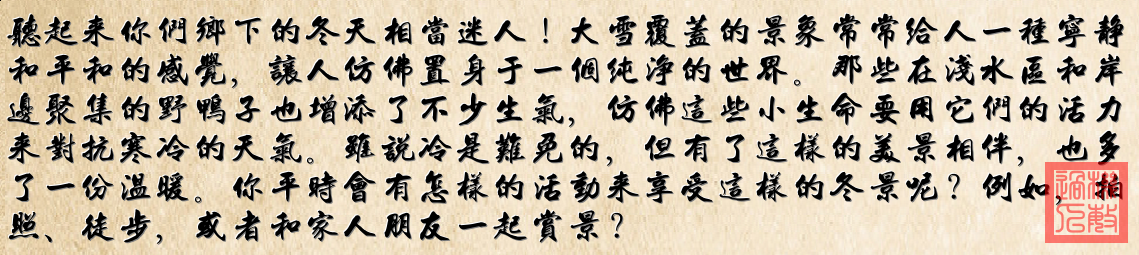 聽起来你們鄉下的冬天相當迷人！大雪覆蓋的景象常常给人一種寧静
和平和的感覺，讓人仿佛置身于一個纯净的世界。那些在淺水區和岸
邊聚集的野鴨子也增添了不少生氣，仿佛這些小生命要用它們的活力
来對抗寒冷的天氣。雖說冷是難免的，但有了這樣的美景相伴，也多
了一份温暖。你平時會有怎樣的活動来享受這樣的冬景呢？例如，拍
照、徒步，或者和家人朋友一起賞景？